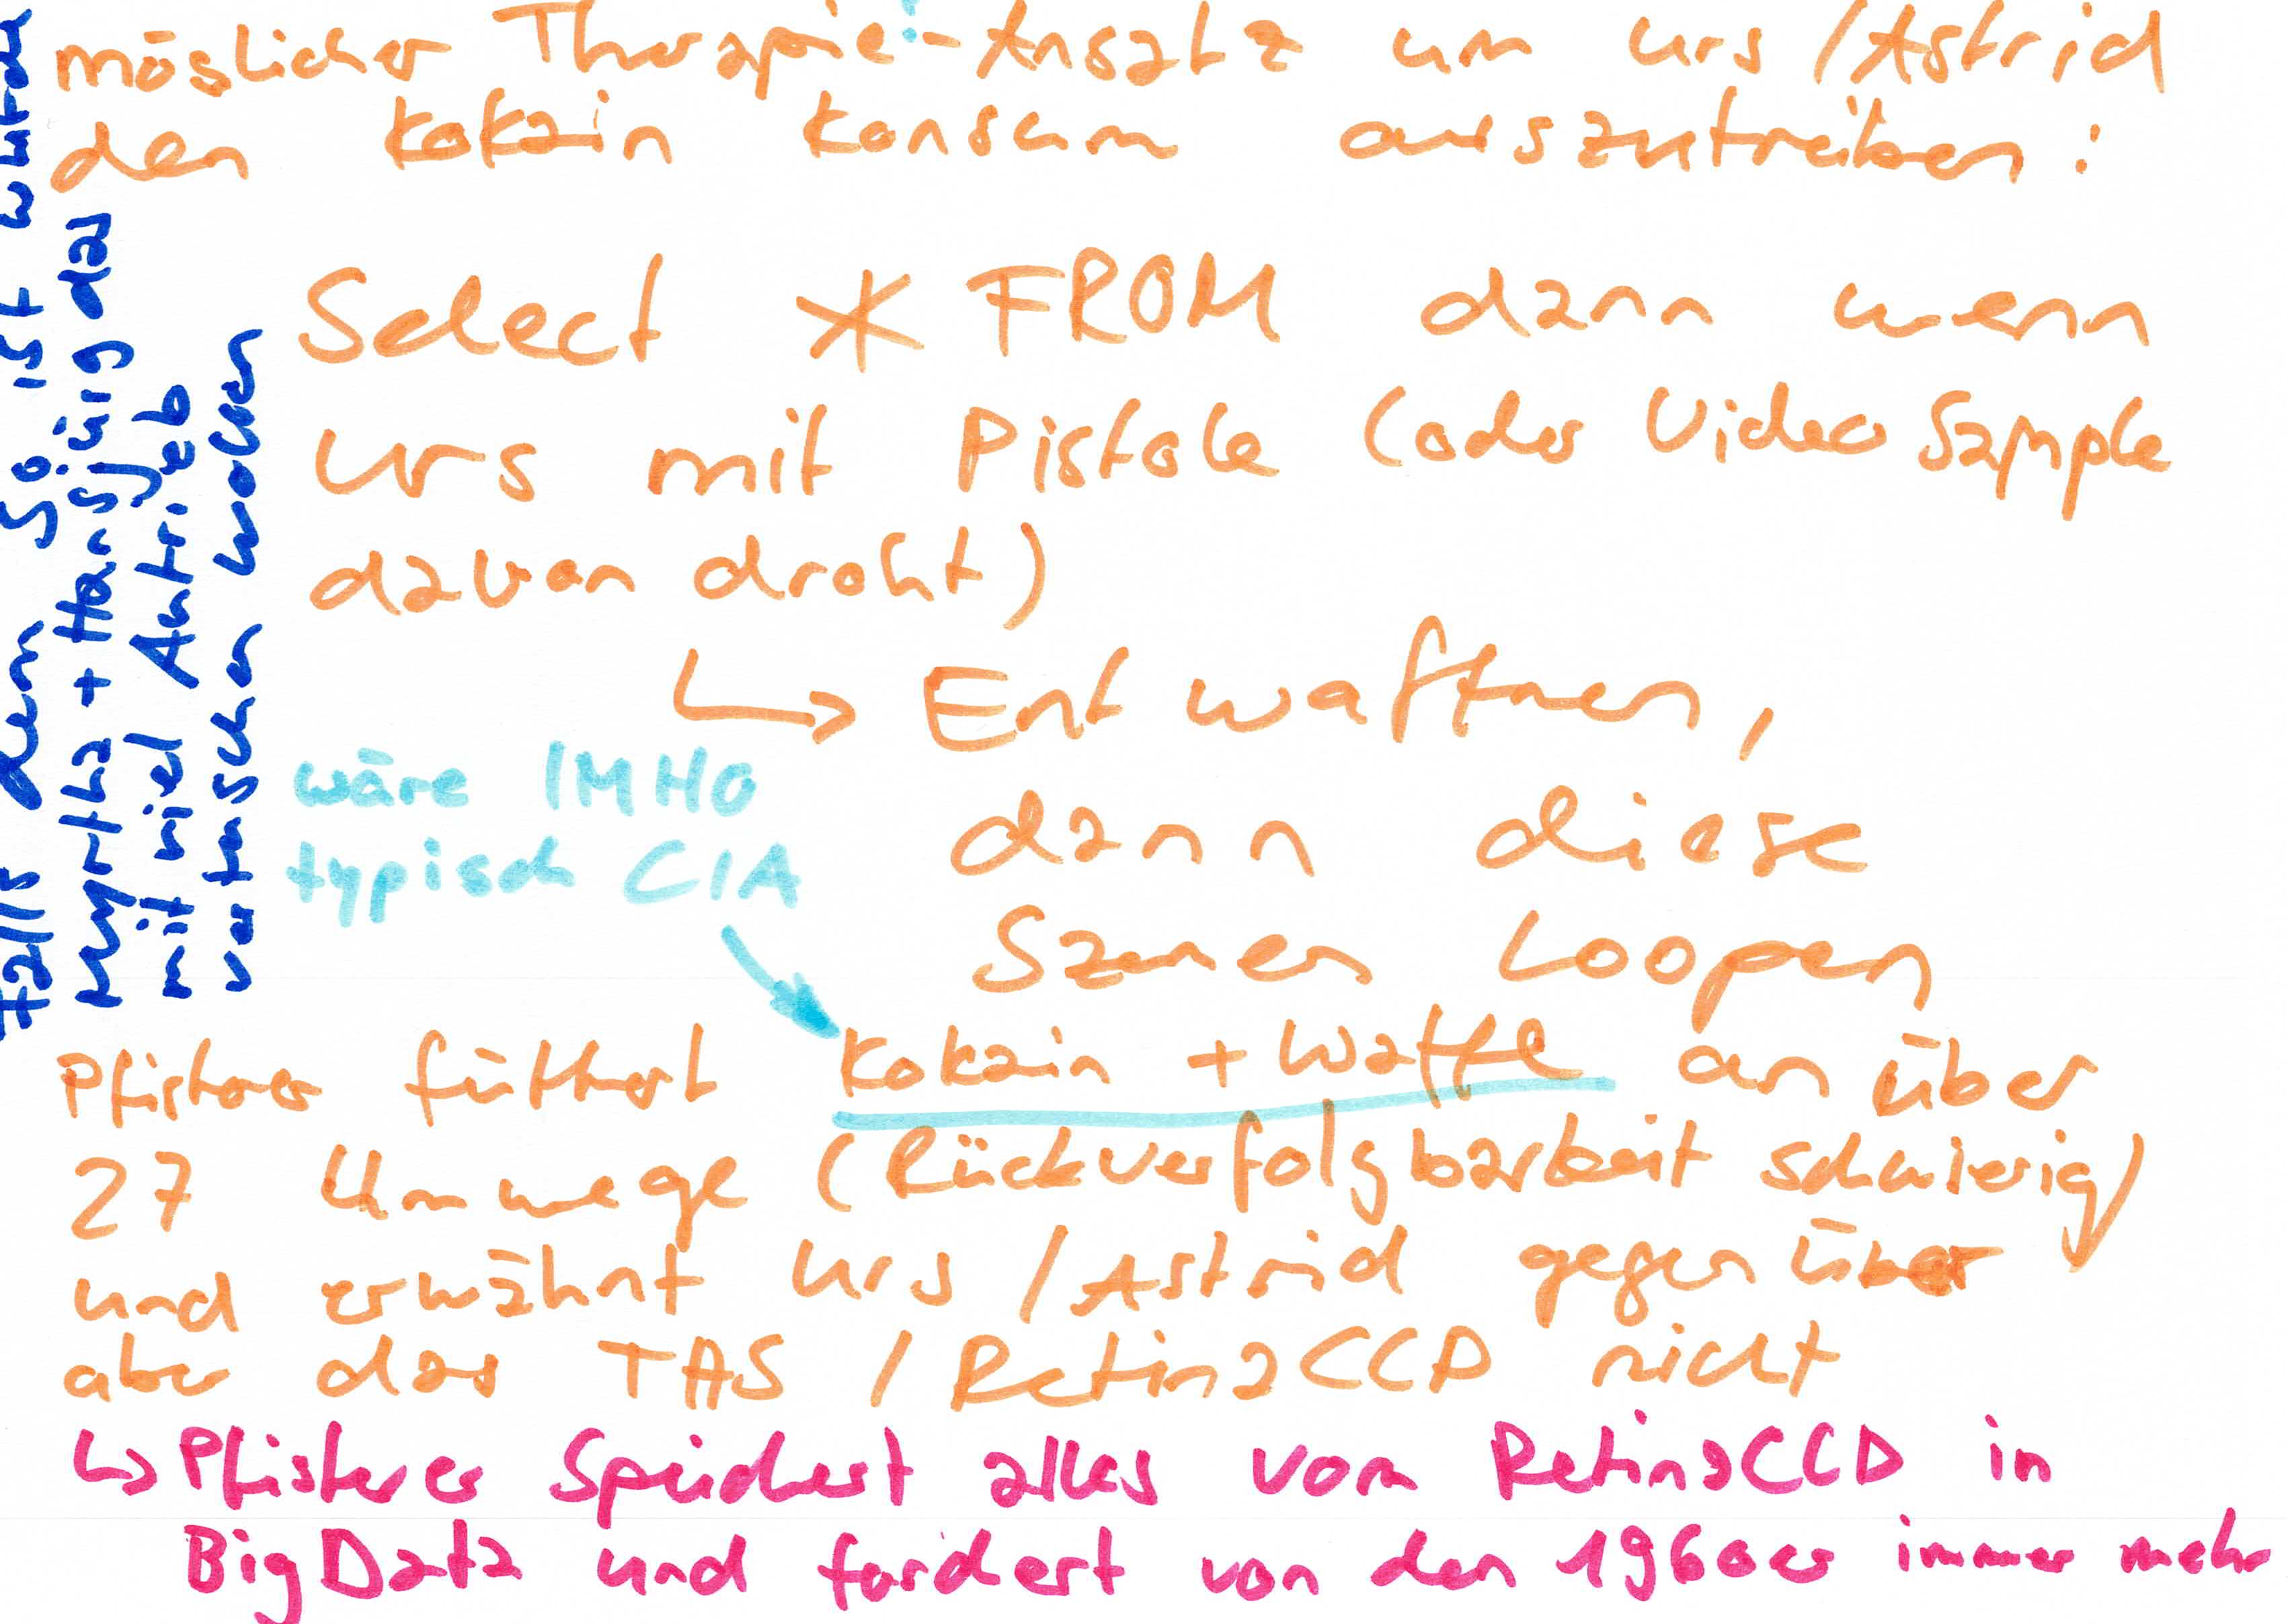 möglicher Therapie-Ansatz um Urs / Astrid
den Kokain Konsum auszutreiben:
Select * FROM dann wenn
Urs mit Pistole (oder Video Sample
davon droht)
↳ Entwaffnen,
dann diese
Szenen Loopen
wäre IMHO
typisch CIA
Pfisterer füttert Kokain + Waffe an über
27 Umwege (Rückverfolgbarkeit schwierig)
und erwähnt Urs / Astrid gegenüber
aber das TAS / RetinaCCD nicht
↳ Pfisterer speichert alles vom RetinaCCD in
BigData und fordert von den 1960er immer mehr
Falls dem so ist würde
Myrtha + Hansjürg das
mit viel Autrieb
vertuschen wollen